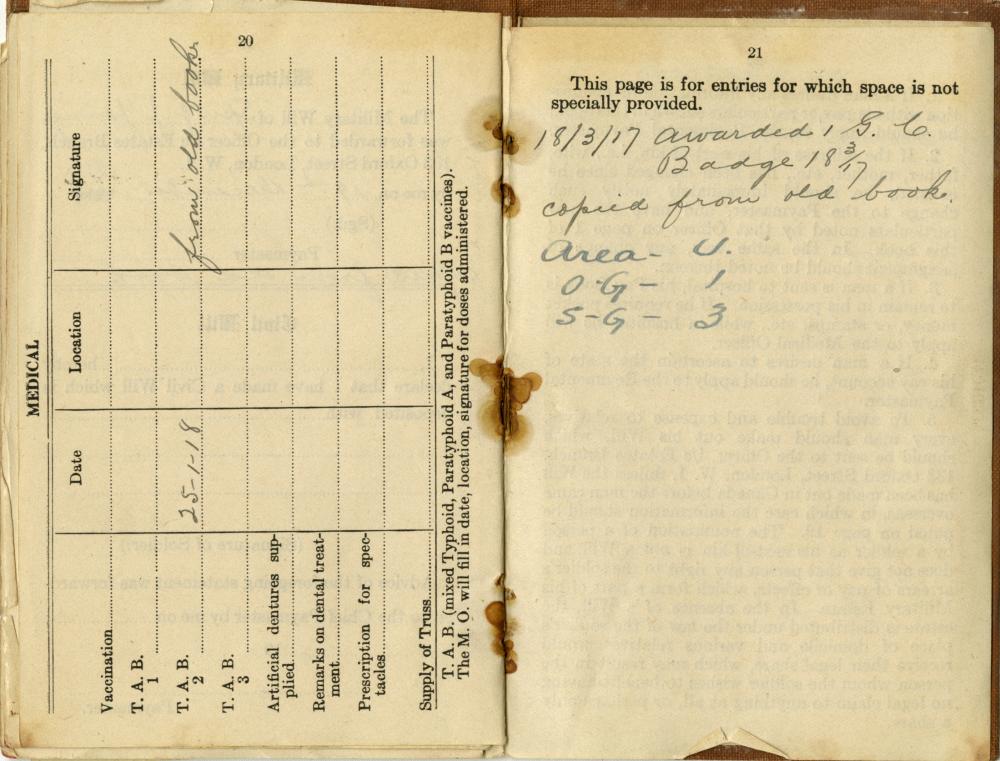 20
MEDICAL
Date Location Signature
Vaccination
T. A. B.
1
T. A. B.
2 25-1-18 from old book
T. A. B.
3
Artificial dentures sup-
plied.
Remarks on dental treat-
ment.
Prescription for spec-
tacles
Supply of Truss
T. A. B. (mixed Typhoid, Paratyphoid A, and Paratyphoid B vaccines).
The M. O. will fill in date, location, signature for doses administered.
21
This page is for entries for which space is not
specially provided.
18/3/17 awarded 1 G. C.
Badge 18 3/17
copied from old book.
Area - U.
O - G - 1
S - G - 3